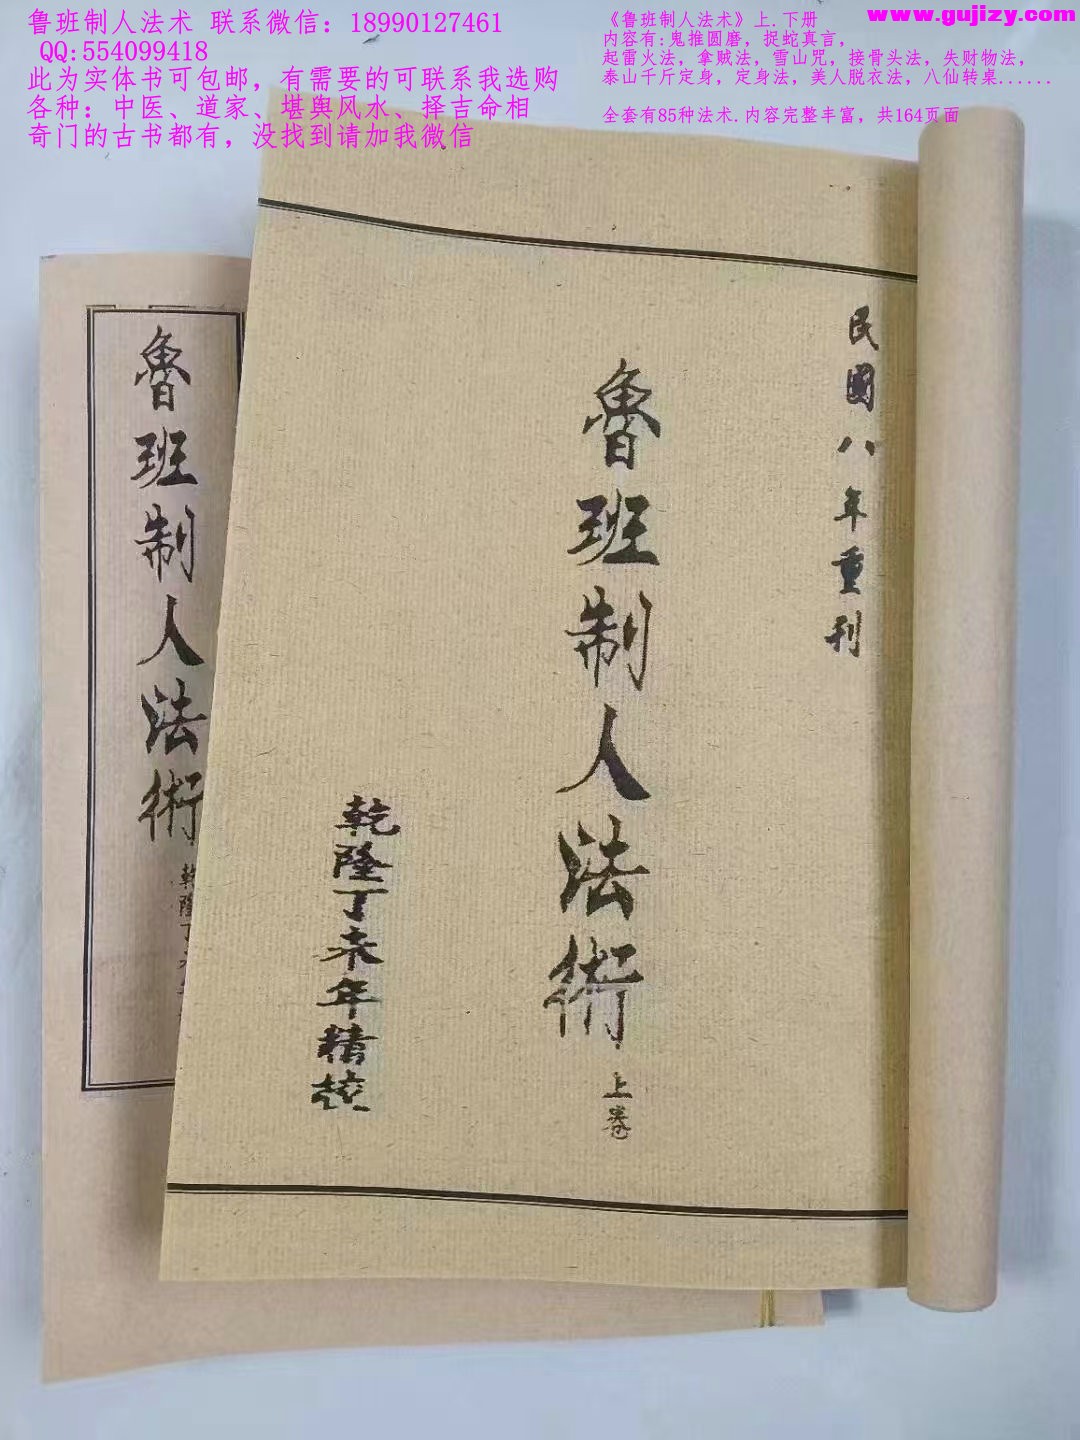 鲁班制人法术 联系微信：18990127461
QQ:554099418
此为实体书可包邮，有需要的可联系我选购
各种：中医、道家、堪舆风水、择吉命相
奇门的古书都有，没找到请加我微信
www.gujizy.com
《鲁班制人法术》上.下册
内容有:鬼推圆磨，捉蛇真言，
起雷火法，拿贼法，雪山咒，接骨头法，失财物法，
泰山千斤定身，定身法，美人脱衣法，八仙转桌......
全套有85种法术.内容完整丰富，共164页面
民國八年重刊
魯班制人法術
上卷
乾隆丁未年精
魯班制人法術
乾隆丁未年